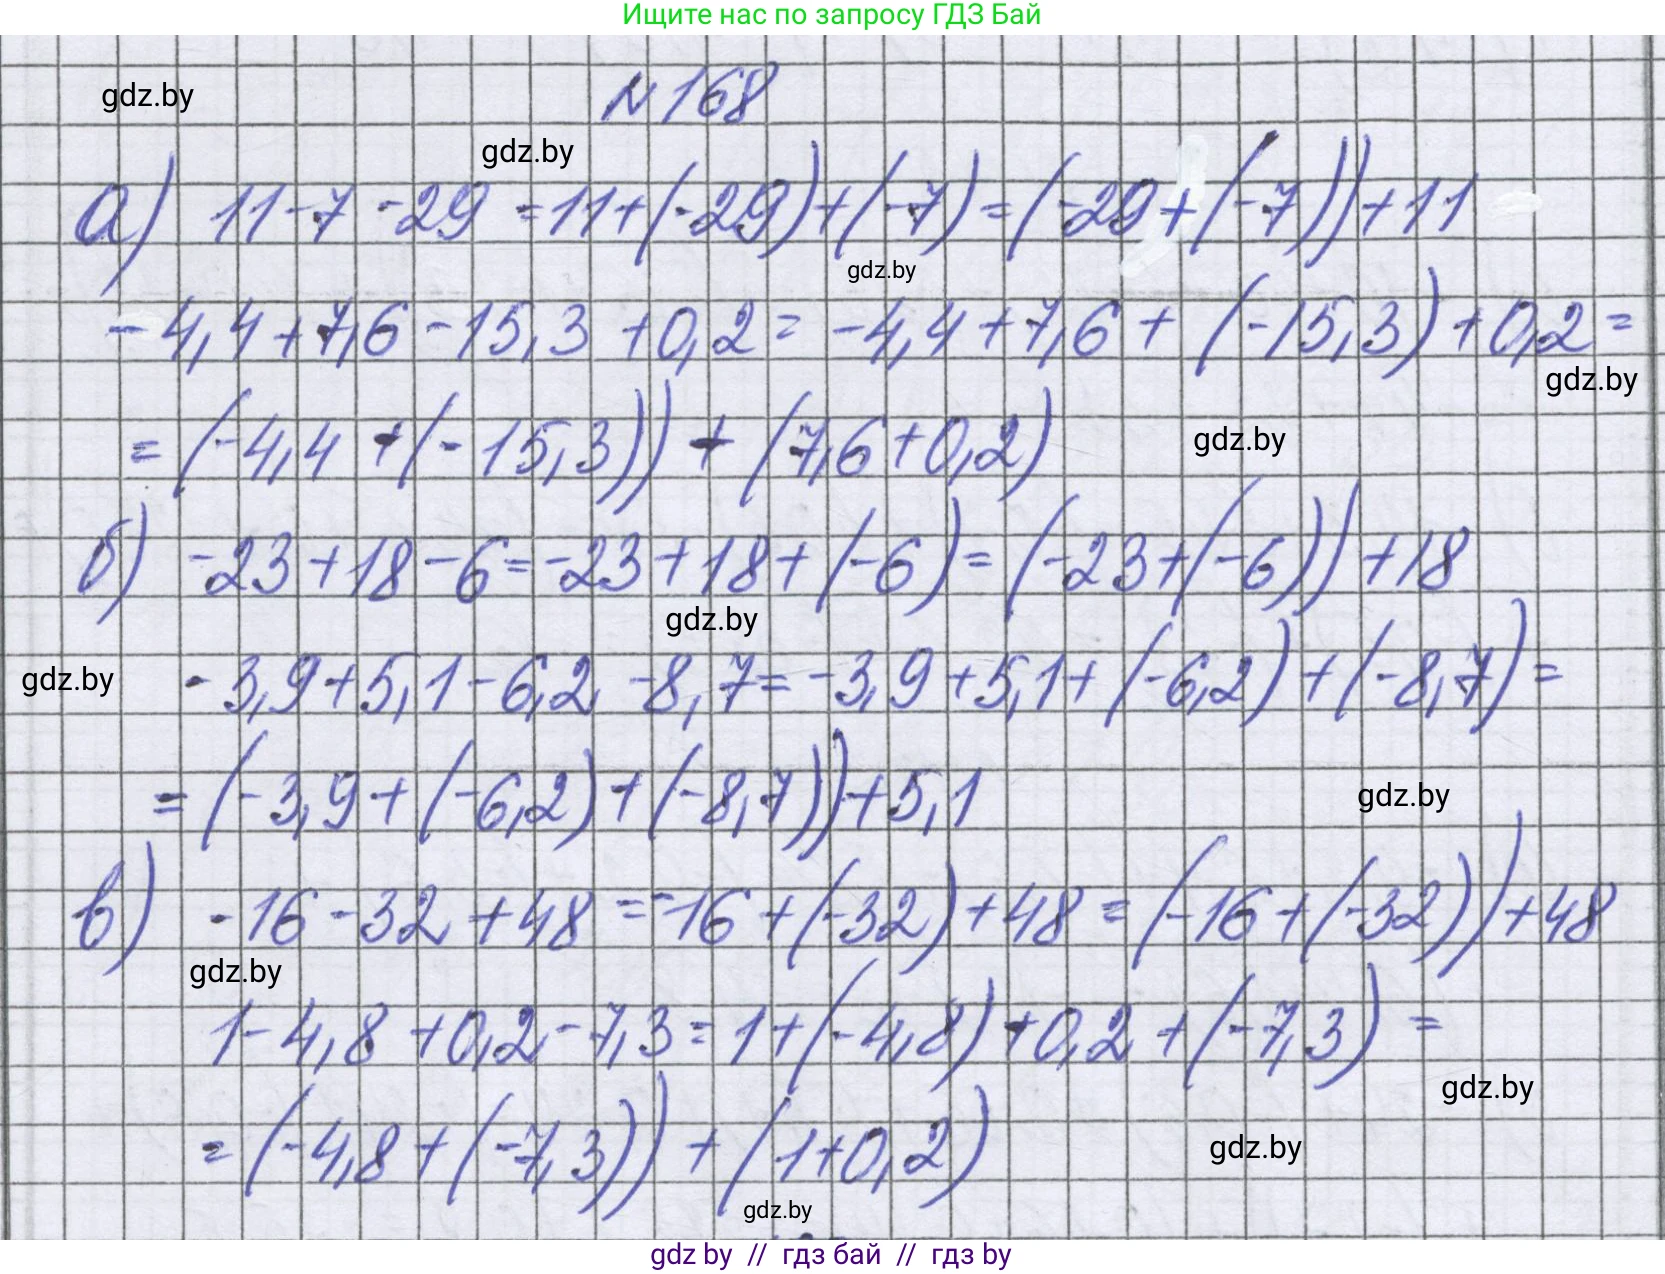 Ищите нас по запросу ГДЗ Бай
№168
gdz.by
gdz.by
а) 11-7-29=11+(-29)+(-7)=(-29+(-7))+11
gdz.by
-4,4+7,6-15,3+0,2=-4,4+7,6+(-15,3)+0,2=
gdz.by
=(-4,4+(-15,3))+(7,6+0,2)
gdz.by
б) -23+18-6=-23+18+(-6)=(-23+(-6))+18
gdz.by
gdz.by
-3,9+5,1-6,2-8,7=-3,9+5,1+(-6,2)+(-8,7)=
=(-3,9+(-6,2)+(-8,7))+5,1
gdz.by
в) -16-32+48=-16+(-32)+48=(-16+(-32))+48
gdz.by
1-4,8+0,2-7,3=1+(-4,8)+0,2+(-7,3)=
gdz.by
=(-4,8+(-7,3))+(1+0,2)
gdz.by
gdz.by
gdz by // гдз бай // гдз by